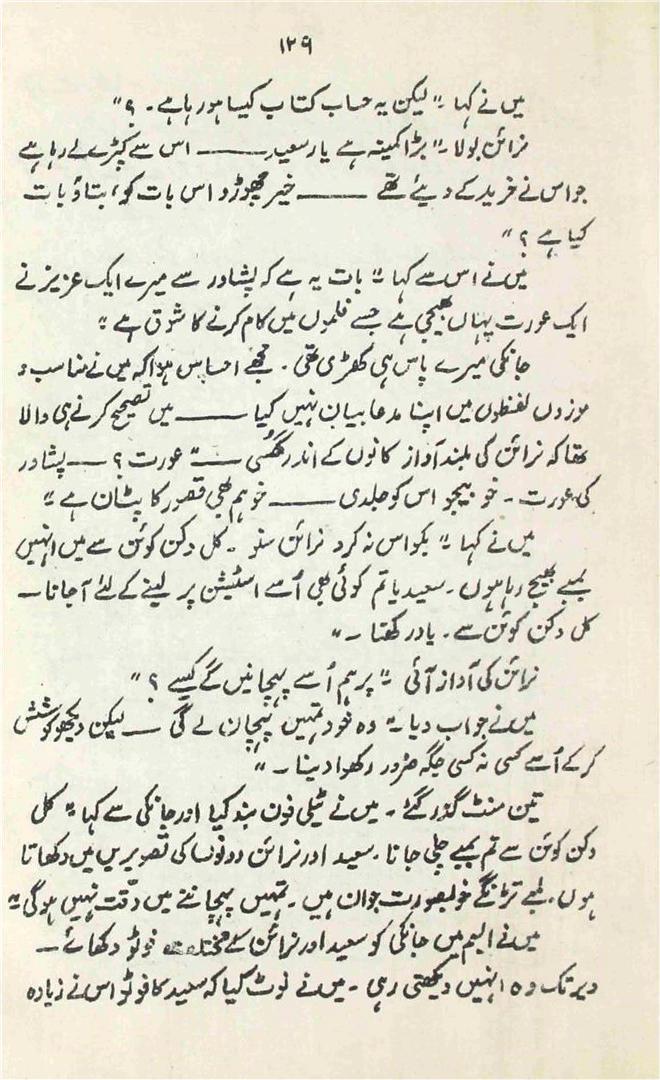 ۱۲۹
میں نے کہا ۔" لیکن یہ حساب کتاب کیسا ہو رہا ہے ۔ ؟"
نرائن بولا ۔" بڑا کمینہ ہے یار سعید ـــــ اس سے کپڑے لے رہا ہے
جو اس نے خرید کے دیئے تھے ـــــ خیر چھوڑو اس بات کو، بتاؤ بات
کیا ہے ؟ "
میں نے اس سے کہا " بات یہ ہے کہ پشاور سے میرے ایک عزیز نے
ایک عورت یہاں بھیجی ہے جسے فلموں میں کام کرنے کا شوق ہے "
جانکی میرے پاس ہی کھڑی تھی ۔ مجھے احساس ہوا کہ میں نے مناسب و
موزوں لفظوں میں اپنا مدعا بیان نہیں کیا ـــــ میں تصحیح کرنے ہی والا
تھا کہ نرائن کی بلند آواز کانوں کے اندر گھُسی ـــ " عورت ؟ ـــ پشاور
کی عورت ۔ خو بیجو اس کو جلدی ـــــ خو ہم بھی قصور کا پٹان ہے "
میں نے کہا " بکواس نہ کرو نرائن سنو ۔ کل دکن کوئن سے میں انہیں
بمبے بھیج رہا ہوں ۔ سعید یا تم کوئی بھی اُسے اسٹیشن پر لینے کے لئے آ جانا ــ
کل دکن کوئن سے ۔ یاد رکھنا ۔ "
نرائن کی آواز آئی " پر ہم اُسے پہچانیں گے کیسے ؟ "
میں نے جواب دیا ۔" وہ خود تمہیں پہچان لے گی ـــ لیکن دیکھو کوشش
کر کے اُسے کسی نہ کسی جگہ ضرور رکھوا دینا ۔ "
تین منٹ گذر گئے ۔ میں نے ٹیلی فون بند کیا اور جانکی سے کہا " کل
دکن کوئن سے تم بمبے چلی جانا ۔ سعید اور نرائن دونوں کی تصویریں میں دکھاتا
ہوں ۔ لمبے تڑنگے خوبصورت جوان ہیں ۔ تمہیں پہچاننے میں دقّت نہیں ہوگی "
میں نے البم میں جانکی کو سعید اور نرائن کے مختلف فوٹو دکھائے ــ
دیر تک وہ انہیں دیکھتی رہی ۔ میں نے نوٹ کیا کہ سعید کا فوٹو اس نے زیادہ